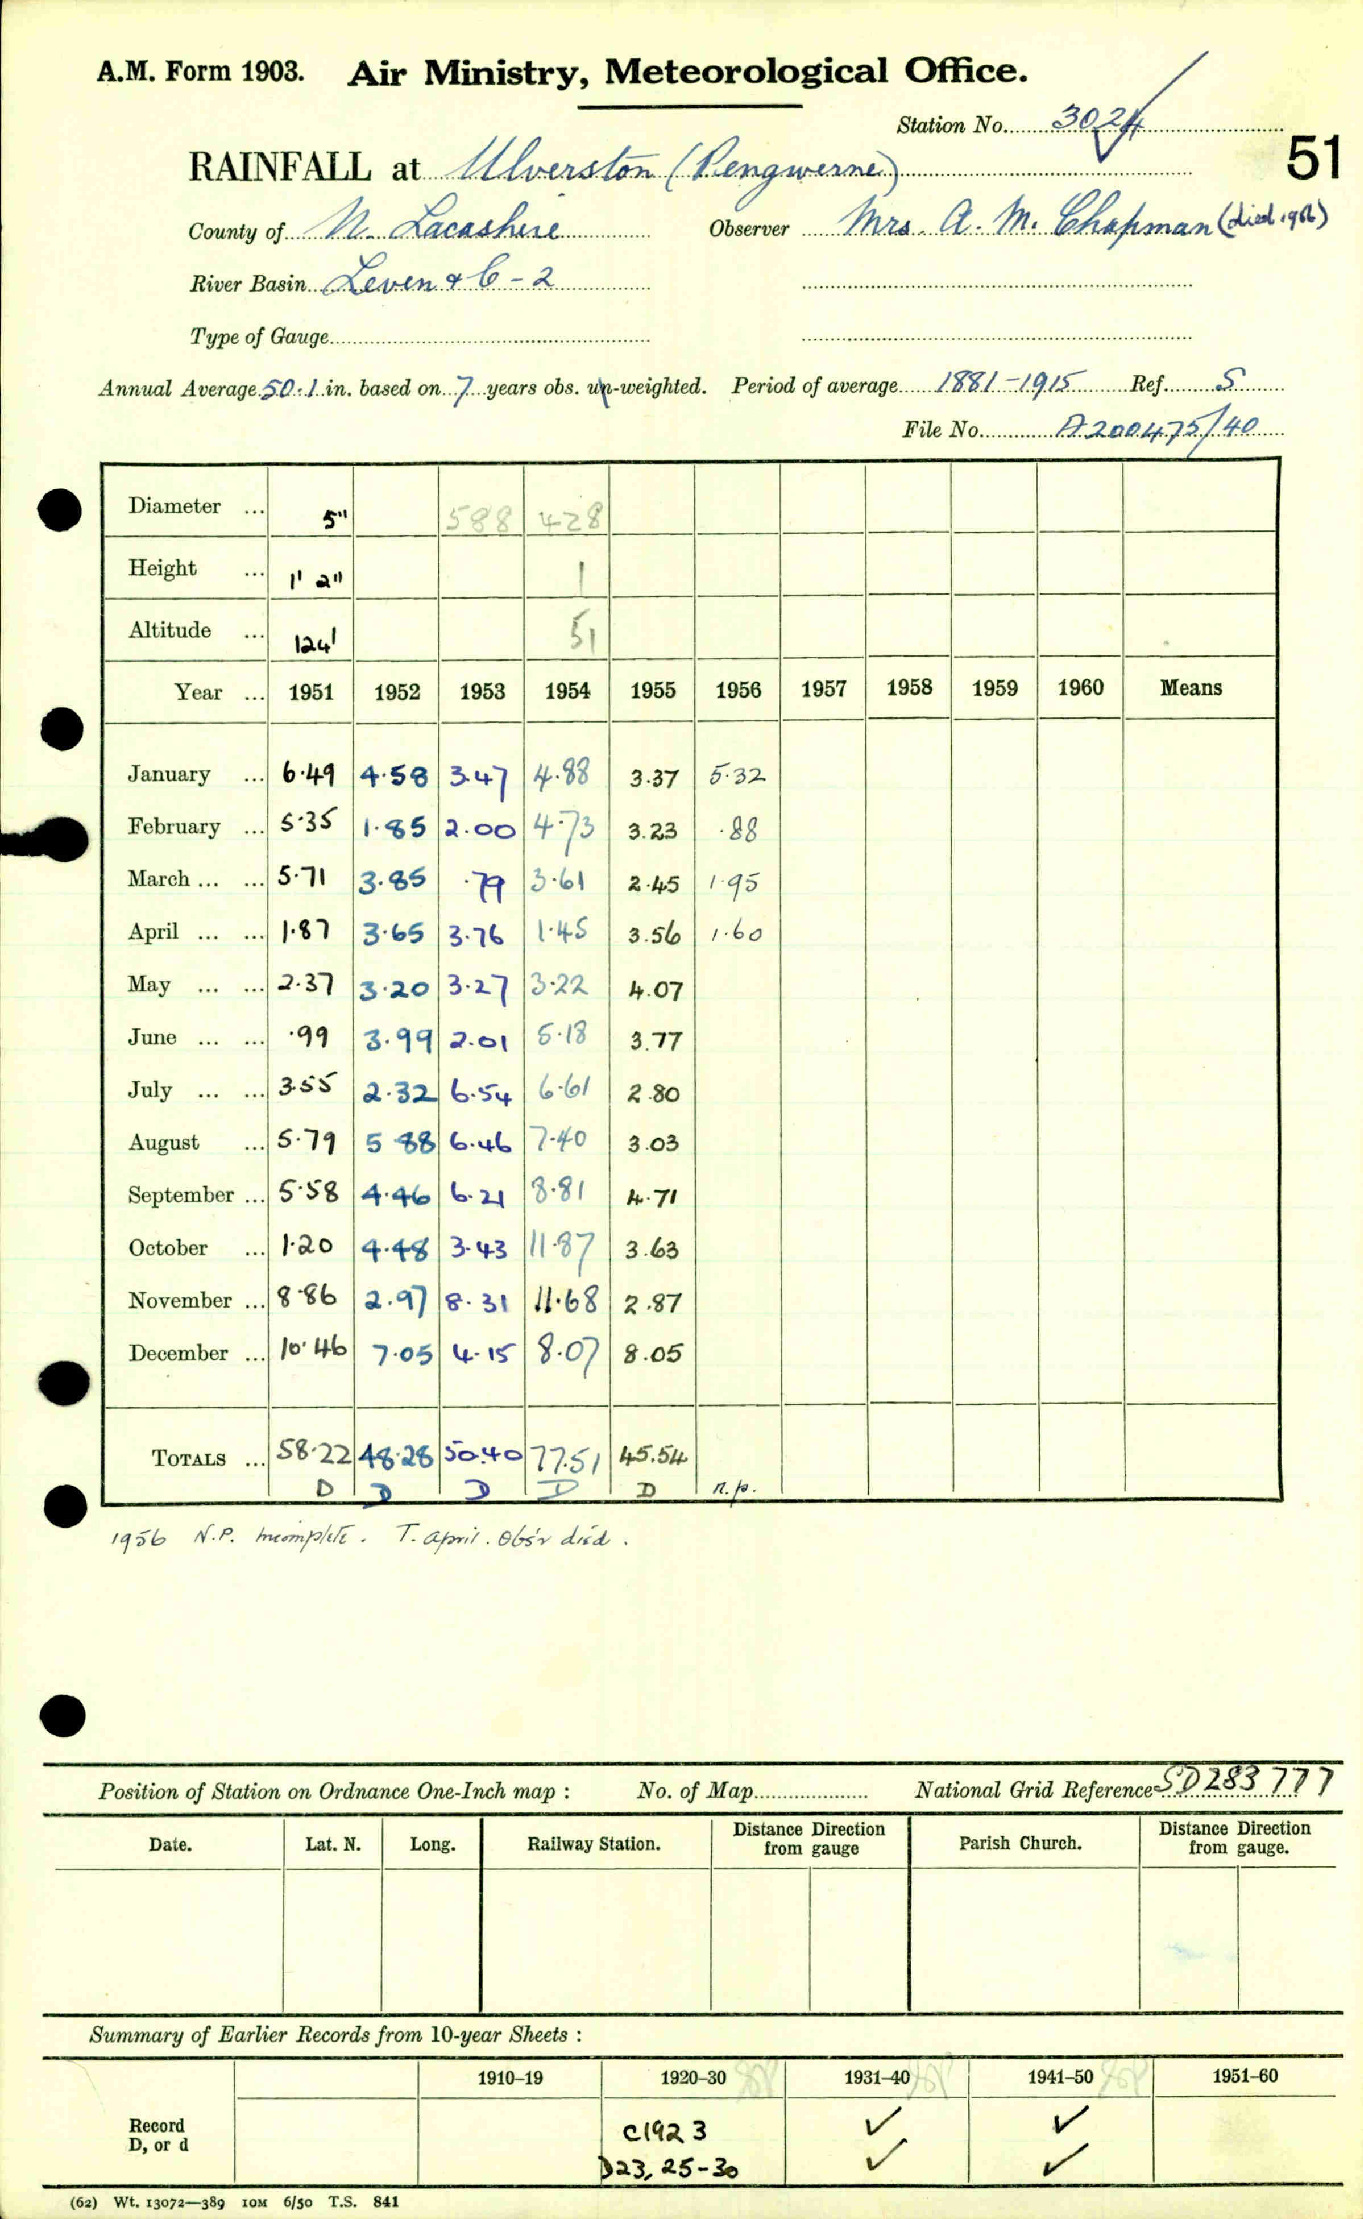 A.M. Form 1903. Air Ministry, Meteorological Office.
Station No. 3024
51
RAINFALL at Ulverston (Pengwerne)
County of N. Lacashire Observer Mrs. A. M. Chapman (died 1956)
River Basin Leven & C - 2
Type of Gauge
Annual Average 50.1 in. based on 7 years obs. un-weighted. Period of average 1881-1915 Ref. S
File No. A200475/40
Diameter ... 5" 588 428
Height ... 1' 2" 1
Altitude ... 124' 51
Year ... 1951 1952 1953 1954 1955 1956 1957 1958 1959 1960 Means
January ... 6.49 4.58 3.47 4.88 3.37 5.32
February ... 5.35 1.85 2.00 4.73 3.23 .88
March ... ... 5.71 3.85 .79 3.61 2.45 1.95
April ... ... 1.87 3.65 3.76 1.45 3.56 1.60
May ... ... 2.37 3.20 3.27 3.22 4.07
June ... ... .99 3.99 2.01 5.18 3.77
July ... ... 3.55 2.32 6.54 6.61 2.80
August ... 5.79 5 88 6.46 7.40 3.03
September ... 5.58 4.46 6.21 8.81 4.71
October ... 1.20 4.48 3.43 11.87 3.63
November ... 8.86 2.97 8.31 11.68 2.87
December ... 10.46 7.05 4.15 8.07 8.05
TOTALS ... 58.22 48.28 50.40 77.51 45.54
D D D D D n.p.
1956 N.P. Incomplete. T. april. Obs'r died.
Position of Station on Ordnance One-Inch map : No. of Map National Grid Reference SD 283 777
Date. Lat. N. Long. Railway Station. Distance Direction from gauge Parish Church. Distance Direction from gauge.
Summary of Earlier Records from 10-year Sheets :
1910-19 1920-30 1931-40 1941-50 1951-60
Record C1923 ✓ ✓
D, or d D23, 25-30 ✓ ✓
(62) Wt. 13072—389 10M 6/50 T.S. 841